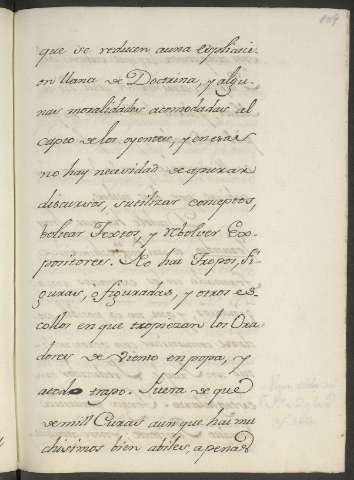 que se reducen auna explicaci-
on llana de Doctrina, y algu-
nas moralidades acomodadas al
capto de los oyentes, y en esas
no hay necesidad de apurar
discursos, sutilizar conceptos,
boltear Textos, y rebolver Ex-
positores. No hai Tropos, fi-
guras, figuradas, y otros es-
collos en que tropiezan los Ora
dores de viento en popa, y
atodo trapo. fuera de que
de mill Curas aunque hai mu
chisimos bien abiles, apenas